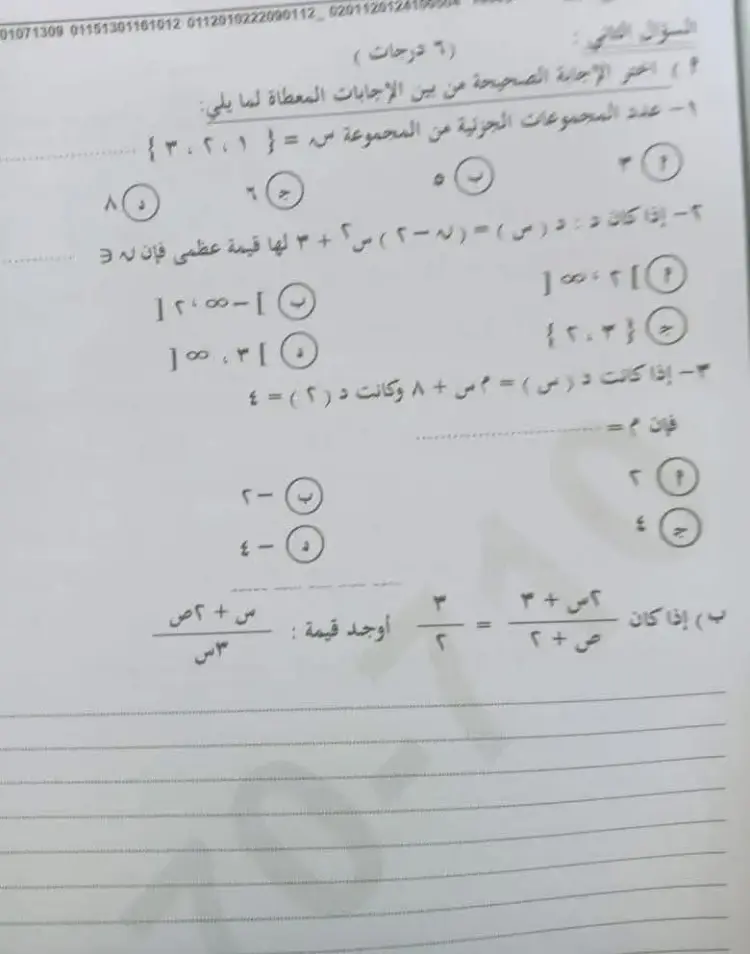 01071309 01151301161012 0112010222090112_ 0201120124
السؤال الثاني : ( ٦ درجات )
أ ) اختر الإجابة الصحيحة من بين الإجابات المعطاة لما يلي:
١– عدد المجموعات الجزئية من المجموعة س = { ١ ، ٢ ، ٣ } ................
أ ٣ ب ٥ ج ٦ د ٨
٢– إذا كان د : د ( س ) = ( ن – ٢ ) س٢ + ٣ لها قيمة عظمى فإن ن ∈ ................
أ ] ٢ ، ∞ [ ب ] – ∞ ، ٢ [
ج { ٣ ، ٢ } د ] ٣ ، ∞ [
٣– إذا كانت د ( س ) = م س + ٨ وكانت د ( ٢ ) = ٤
فإن م = ................
أ ٢ ب –٢
ج ٤ د – ٤
ب ) إذا كان ٢س + ٣ / ص + ٢ = ٣ / ٢ أوجد قيمة : س + ٢ص / ٣س
70-710